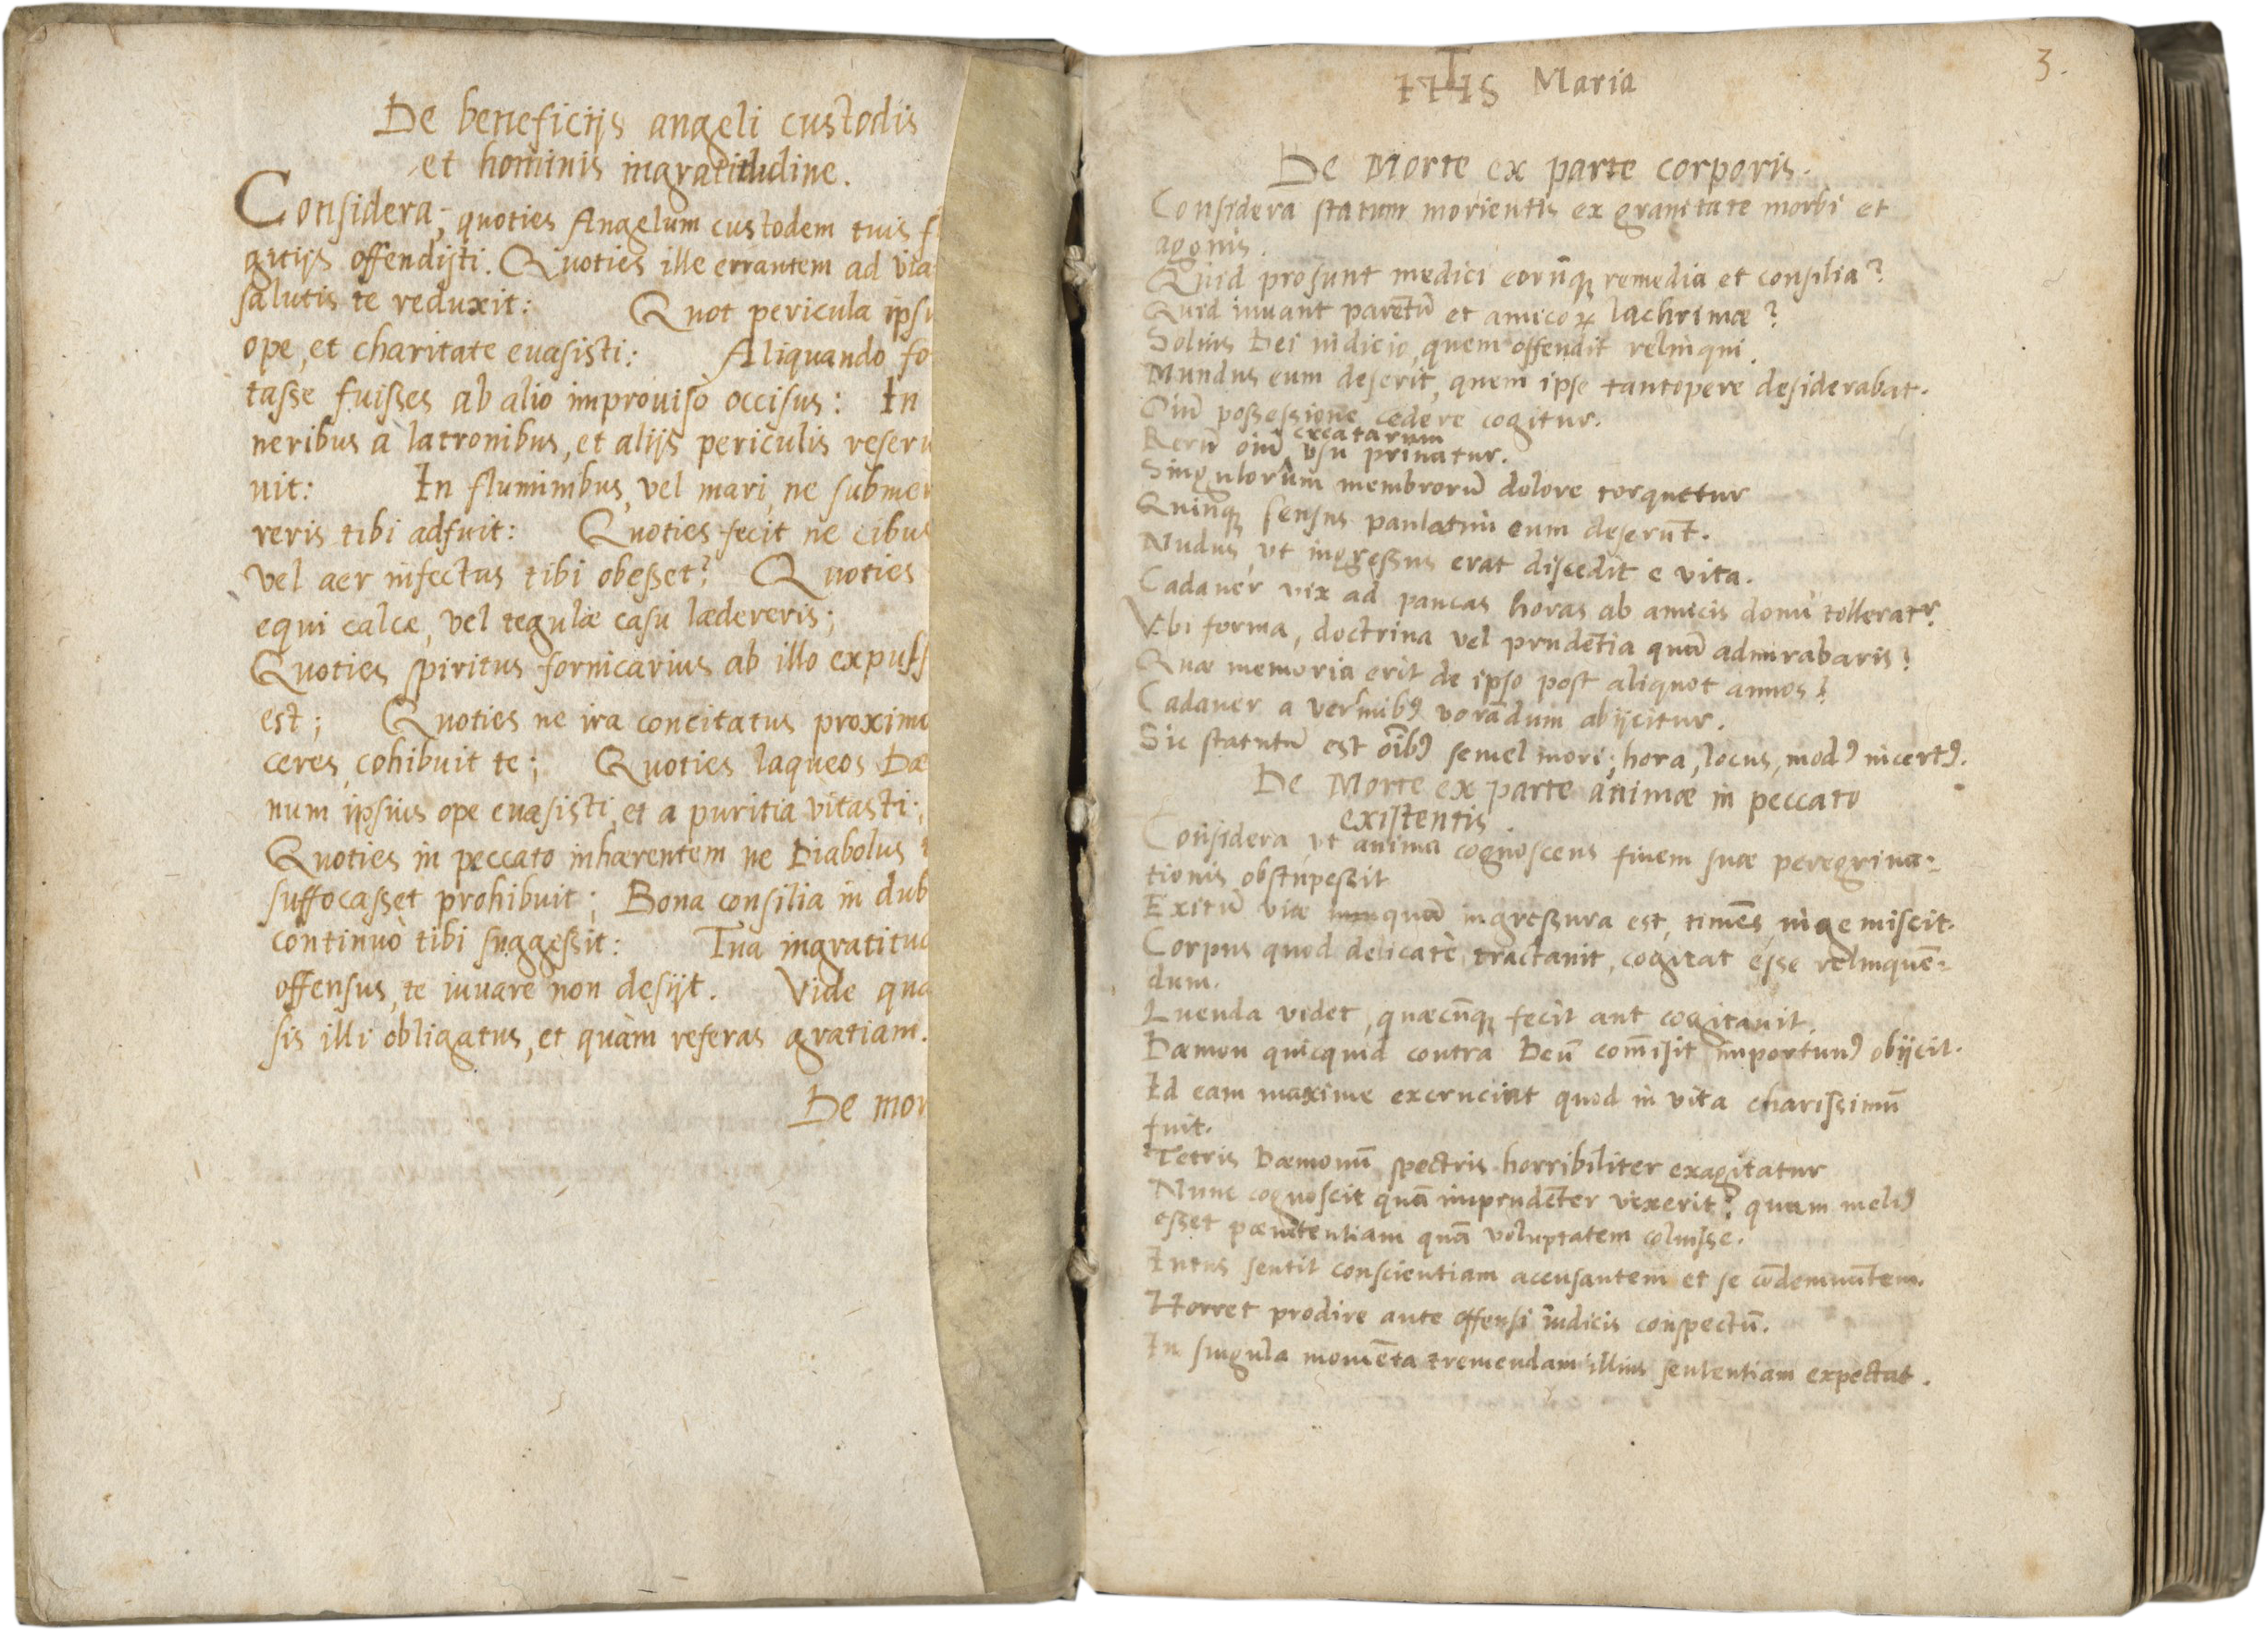 De beneficijs angeli custodis
et hominis ingratitudine.
Considera; quoties Angelum custodem tuis f
gitijs offendisti. Quoties ille errantem ad via
salutis te reduxit: Quot pericula ipsi
ope, et charitate euasisti: Aliquando fo
tasse fuisses ab alio improuiso occisus: In
neribus a latronibus, et alijs periculis reseru
uit: In fluminibus, vel mari, ne submer
reris tibi adfuit: Quoties fecit ne cibus
vel aer infectus tibi obesset? Quoties
equi calce, vel tegulæ casu lædereris;
Quoties spiritus fornicarius ab illo expuls
est; Quoties ne ira concitatus proximo
ceres, cohibuit te; Quoties laqueos Dæ
num ipsius ope euasisti, et a puritia vitasti;
Quoties in peccato inhærentem ne Diabolus
suffocasset prohibuit; Bona consilia in dub
continuò tibi suggessit: Tua ingratitud
offensus, te iuuare non desijt. Vide qua
sis illi obligatus, et quàm referas gratiam.
De mor
3.
IHS Maria
De Morte ex parte corporis.
Considera statum morientis ex grauitate morbi et
agonis.
Quid prosunt medici eorūq; remedia et consilia?
Quid iuuant parētū et amicoꝝ lachrimæ?
Solius Dei iudicio, quem offendit relinqui.
Mundus eum deserit, quem ipse tantopere desiderabat.
Oīū possessione cedere cogitur.
creatarum
Rerū oīū ^ vsu priuatur.
Singulorum membrorū dolore torquetur
Quinq; sensus paulatim eum deserūt.
Nudus, vt ingressus erat discedit e vita.
Cadauer vix ad paucas horas ab amicis domi tolleratr?
Vbi forma, doctrina vel prudētia quā admirabaris?
Quæ memoria erit de ipso post aliquot annos?
Cadauer a vermibꝰ vorādum abijcitur.
Sic statutū est oībꝰ semel mori; hora, locus, modꝰ incertꝰ.
De Morte ex parte animæ in peccato
existentis.
Considera vt anima cognoscens finem suæ peregrina-
tionis obstupessit
Exitū viæ quā ingressura est, timēs, ingemiscit.
Corpus quod delicatè tractauit, cogitat esse relinquē-
dum.
Luenda videt, quæcūq; fecit aut cogitauit.
Dæmon quicquid contra Deū comīsit importunꝰ obijcit.
Id eam maxime excruciat quod in vita charissimū
fuit.
Tetris Dæmonū spectris horribiliter exagitatur
Nunc cognoscit quā imprudēter vixerit? quam meliꝰ
esset pænitentiam quā voluptatem coluisse.
Intus sentit conscientiam accusantem et se cōdemnātem.
Horret prodire ante offensi iudicis conspectū.
In singula momēta tremendam illius sententiam expectat.